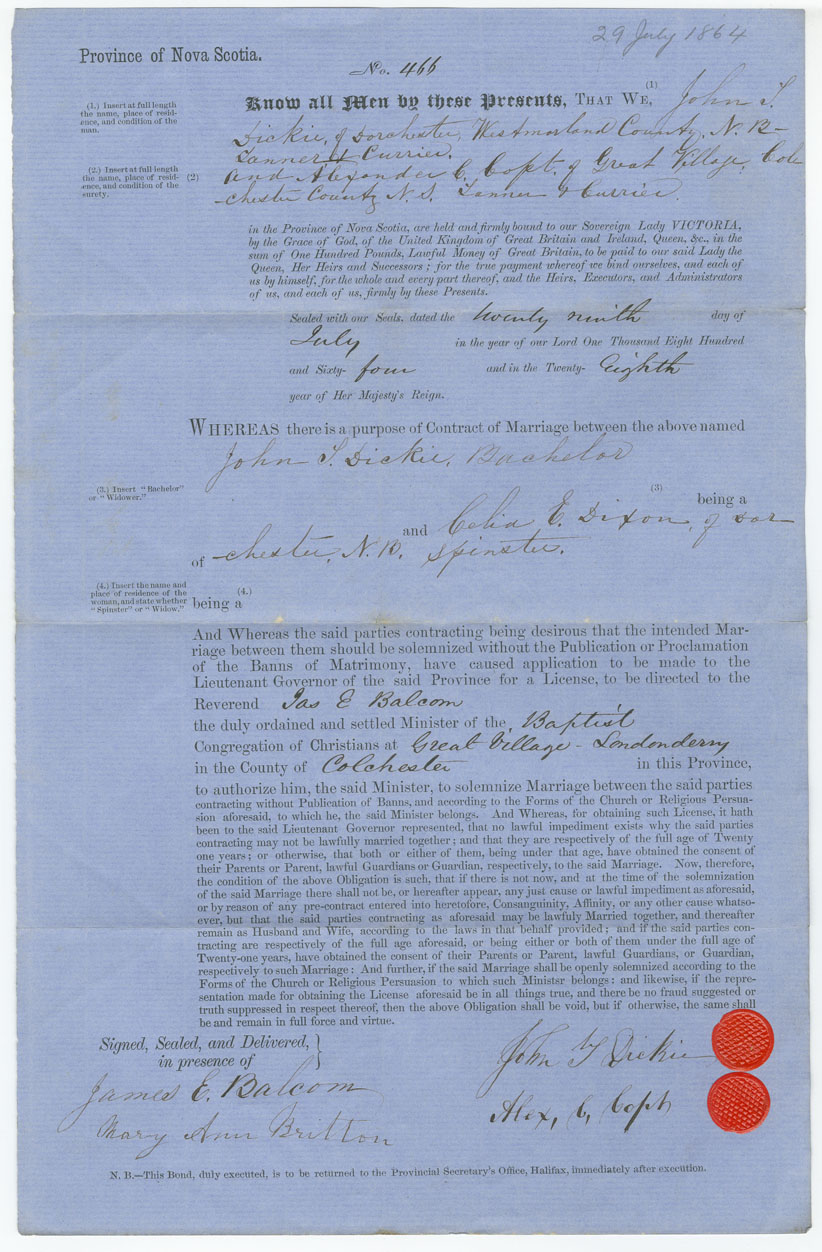 29 July 1864
Province of Nova Scotia.
No. 466
(1.) Insert at full length
the name, place of resid-
ence, and condition of the
man.
Know all Men by these Presents, THAT WE, (1) John T.
Dickie, of Dorchester, Westmorland County, N. B-
Tanner & Currier.
(2.) Insert at full length
the name, place of resid-
ence, and condition of the
surety.
(2) And Alexander C. Copt. of Great Village, Col-
chester County N.S. Tanner & Currier.
in the Province of Nova Scotia, are held and firmly bound to our Sovereign Lady VICTORIA,
by the Grace of God, of the United Kingdom of Great Britain and Ireland, Queen, &c., in the
sum of One Hundred Pounds, Lawful Money of Great Britain, to be paid to our said Lady the
Queen, Her Heirs and Successors ; for the true payment whereof we bind ourselves, and each of
us by himself, for the whole and every part thereof, and the Heirs, Executors, and Administrators
of us, and each of us, firmly by these Presents.
Sealed with our Seals, dated the twenty ninth day of
July in the year of our Lord One Thousand Eight Hundred
and Sixty- four and in the Twenty- Eighth
year of Her Majesty's Reign.
WHEREAS there is a purpose of Contract of Marriage between the above named
John T. Dickie, Bachelor
(3.) Insert "Bachelor"
or "Widower."
(3) being a
and Celia E. Dixon, of Dor-
of chester, N.B. Spinster.
(4.) Insert the name and
place of residence of the
woman, and state whether
"Spinster" or "Widow."
being a (4.)
And Whereas the said parties contracting being desirous that the intended Mar-
riage between them should be solemnized without the Publication or Proclamation
of the Banns of Matrimony, have caused application to be made to the
Lieutenant Governor of the said Province for a License, to be directed to the
Reverend Jas E Balcom
the duly ordained and settled Minister of the Baptist
Congregation of Christians at Great Village - Londonderry
in the County of Colchester in this Province,
to authorize him, the said Minister, to solemnize Marriage between the said parties
contracting without Publication of Banns, and according to the Forms of the Church or Religious Persua-
sion aforesaid, to which he, the said Minister belongs. And Whereas, for obtaining such License, it hath
been to the said Lieutenant Governor represented, that no lawful impediment exists why the said parties
contracting may not be lawfully married together ; and that they are respectively of the full age of Twenty
one years ; or otherwise, that both or either of them, being under that age, have obtained the consent of
their Parents or Parent, lawful Guardians or Guardian, respectively, to the said Marriage. Now, therefore,
the condition of the above Obligation is such, that if there is not now, and at the time of the solemnization
of the said Marriage there shall not be, or hereafter appear, any just cause or lawful impediment as aforesaid,
or by reason of any pre-contract entered into heretofore, Consanguinity, Affinity, or any other cause whatso-
ever, but that the said parties contracting as aforesaid may be lawfuly Married together, and thereafter
remain as Husband and Wife, according to the laws in that behalf provided ; and if the said parties con-
tracting are respectively of the full age aforesaid, or being either or both of them under the full age of
Twenty-one years, have obtained the consent of their Parents or Parent, lawful Guardians, or Guardian,
respectively to such Marriage : And further, if the said Marriage shall be openly solemnized according to the
Forms of the Church or Religious Persuasion to which such Ministsr belongs : and likewise, if the repre-
sentation made for obtaining the License aforesaid be in all things true, and there be no fraud suggested or
truth suppressed in respect thereof, then the above Obligation shall be void, but if otherwise, the same shall
be and remain in full force and virtue.
Signed, Sealed, and Delivered,
in presence of
John T Dickie
James E. Balcom
Alex, C, Copt
Mary Ann Britton
N. B.—This Bond, duly executed, is to be returned to the Provincial Secretary's Office, Halifax, immediately after execution.